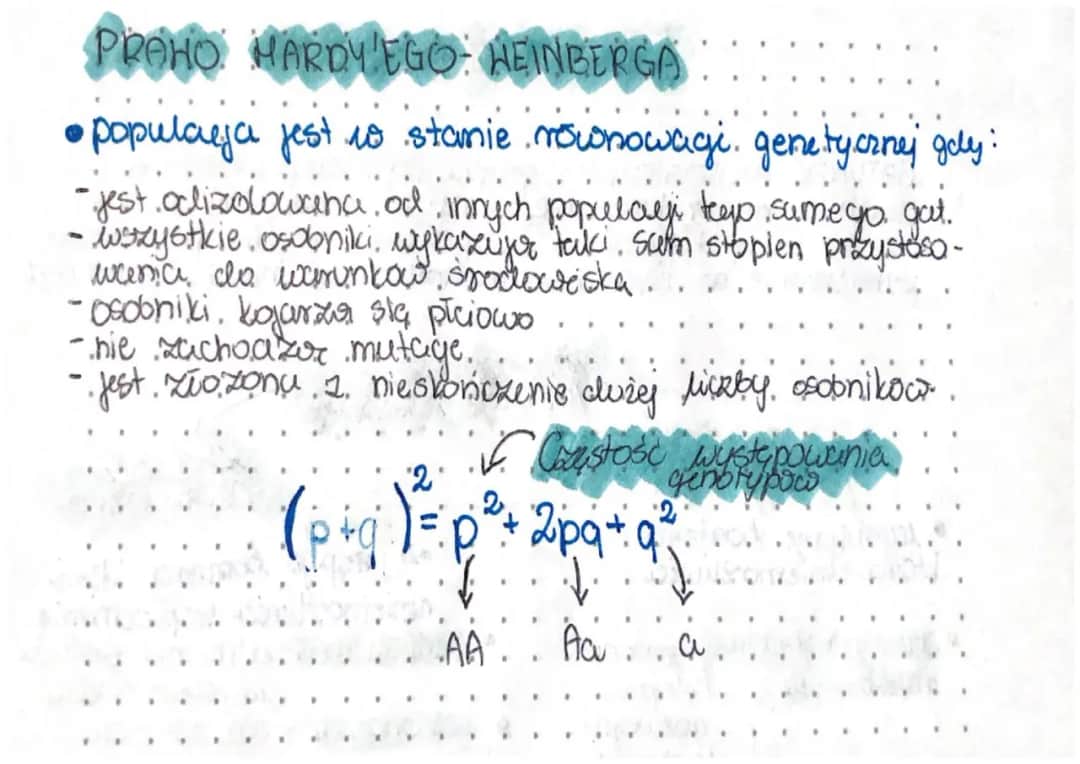 PRAWO HARDY'EGO-WEINBERGA
• populacja jest w stanie równowagi genetycznej gdy:
- jest odizolowana od innych populacji tego samego gat.
- wszystkie osobniki wykazują taki sam stopień przystoso-
wania do warunków środowiska
- osobniki kojarzą się płciowo
- nie zachodzą mutacje
- jest złożona z nieskończenie dużej liczby osobników
Częstość występowania
genotypów
(p+q)²=p²+2pq+q²
AA Aa a